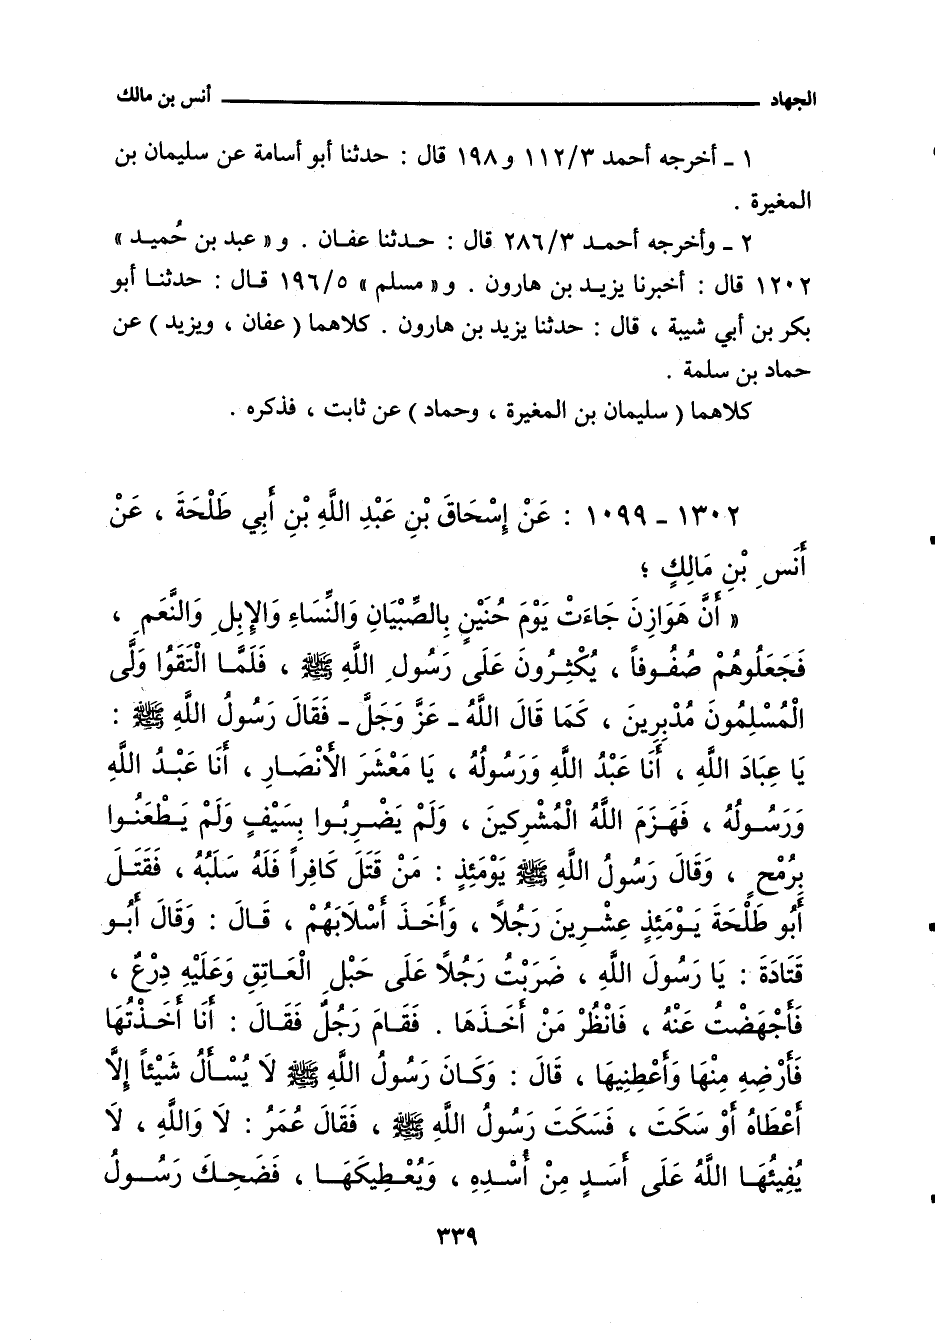 الجهاد ـــــــــــــــــ أنس بن مالك
١ ـ أخرجه أحمد ٣/ ١١٢ و ١٩٨ قال : حدثنا أبو أسامة عن سليمان بن
المغيرة .
٢ ـ وأخرجه أحمد ٣/ ٢٨٦ قال : حدثنا عفان . و« عبد بن حُميد »
١٢٠٢ قال : أخبرنا يزيد بن هارون . و« مسلم » ٥/ ١٩٦ قال : حدثنا أبو
بكر بن أبي شيبة ، قال : حدثنا يزيد بن هارون . كلاهما ( عفان ، ويزيد ) عن
حماد بن سلمة .
كلاهما ( سليمان بن المغيرة ، وحماد ) عن ثابت ، فذكره .
١٣٠٢ ـ ١٠٩٩ : عَنْ إِسْحَاقَ بْنِ عَبْدِ اللَّهِ بْنِ أَبِي طَلْحَةَ ، عَنْ
أَنَسِ بْنِ مَالِكٍ ؛
« أَنَّ هَوَازِنَ جَاءَتْ يَوْمَ حُنَيْنٍ بِالصِّبْيَانِ وَالنِّسَاءِ وَالإِبِلِ وَالنَّعَمِ ،
فَجَعَلُوهُمْ صُفُوفاً ، يُكْثِرُونَ عَلَى رَسُولِ اللَّهِ ﷺ ، فَلَمَّا الْتَقَوُا وَلَّى
الْمُسْلِمُونَ مُدْبِرِينَ ، كَمَا قَالَ اللَّهُ ـ عَزَّ وَجَلَّ ـ فَقَالَ رَسُولُ اللَّهِ ﷺ :
يَا عِبَادَ اللَّهِ ، أَنَا عَبْدُ اللَّهِ وَرَسُولُهُ ، يَا مَعْشَرَ الأَنْصَارِ ، أَنَا عَبْدُ اللَّهِ
وَرَسُولُهُ ، فَهَزَمَ اللَّهُ الْمُشْرِكِينَ ، وَلَمْ يَضْرِبُوا بِسَيْفٍ وَلَمْ يَطْعَنُوا
بِرُمْحٍ ، وَقَالَ رَسُولُ اللَّهِ ﷺ يَوْمَئِذٍ : مَنْ قَتَلَ كَافِراً فَلَهُ سَلَبُهُ ، فَقَتَلَ
أَبُو طَلْحَةَ يَوْمَئِذٍ عِشْرِينَ رَجُلاً ، وَأَخَذَ أَسْلاَبَهُمْ ، قَالَ : وَقَالَ أَبُو
قَتَادَةَ : يَا رَسُولَ اللَّهِ ، ضَرَبْتُ رَجُلاً عَلَى حَبْلِ الْعَاتِقِ وَعَلَيْهِ دِرْعٌ ،
فَأُجْهِضْتُ عَنْهُ ، فَانْظُرْ مَنْ أَخَذَهَا . فَقَامَ رَجُلٌ فَقَالَ : أَنَا أَخَذْتُهَا
فَأَرْضِهِ مِنْهَا وَأَعْطِنِيهَا ، قَالَ : وَكَانَ رَسُولُ اللَّهِ ﷺ لاَ يُسْأَلُ شَيْئاً إِلاَّ
أَعْطَاهُ أَوْ سَكَتَ ، فَسَكَتَ رَسُولُ اللَّهِ ﷺ ، فَقَالَ عُمَرُ : لاَ وَاللَّهِ ، لاَ
يُفِيئُهَا اللَّهُ عَلَى أَسَدٍ مِنْ أُسْدِهِ ، وَيُعْطِيكَهَا ، فَضَحِكَ رَسُولُ
٣٣٩